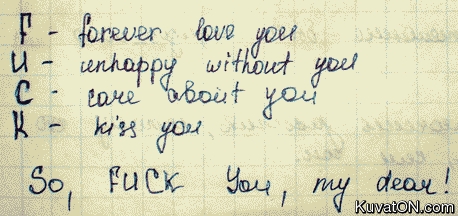 F - forever love you
U - unhappy without you
C - care about you
K - kiss you
So, FUCK you, my dear!
KuvatON.com